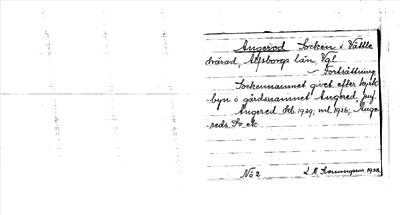 Angered Socken i Vättle
härad, Älfsborgs län, Vgl
– Fortsättning
Sockennamnet givet efter kyrk-
byn o gårdsnamnet Angered, jmf
Angered Jb. 1939, ml. 1936, Ange-
reds So etc
No 2
1938